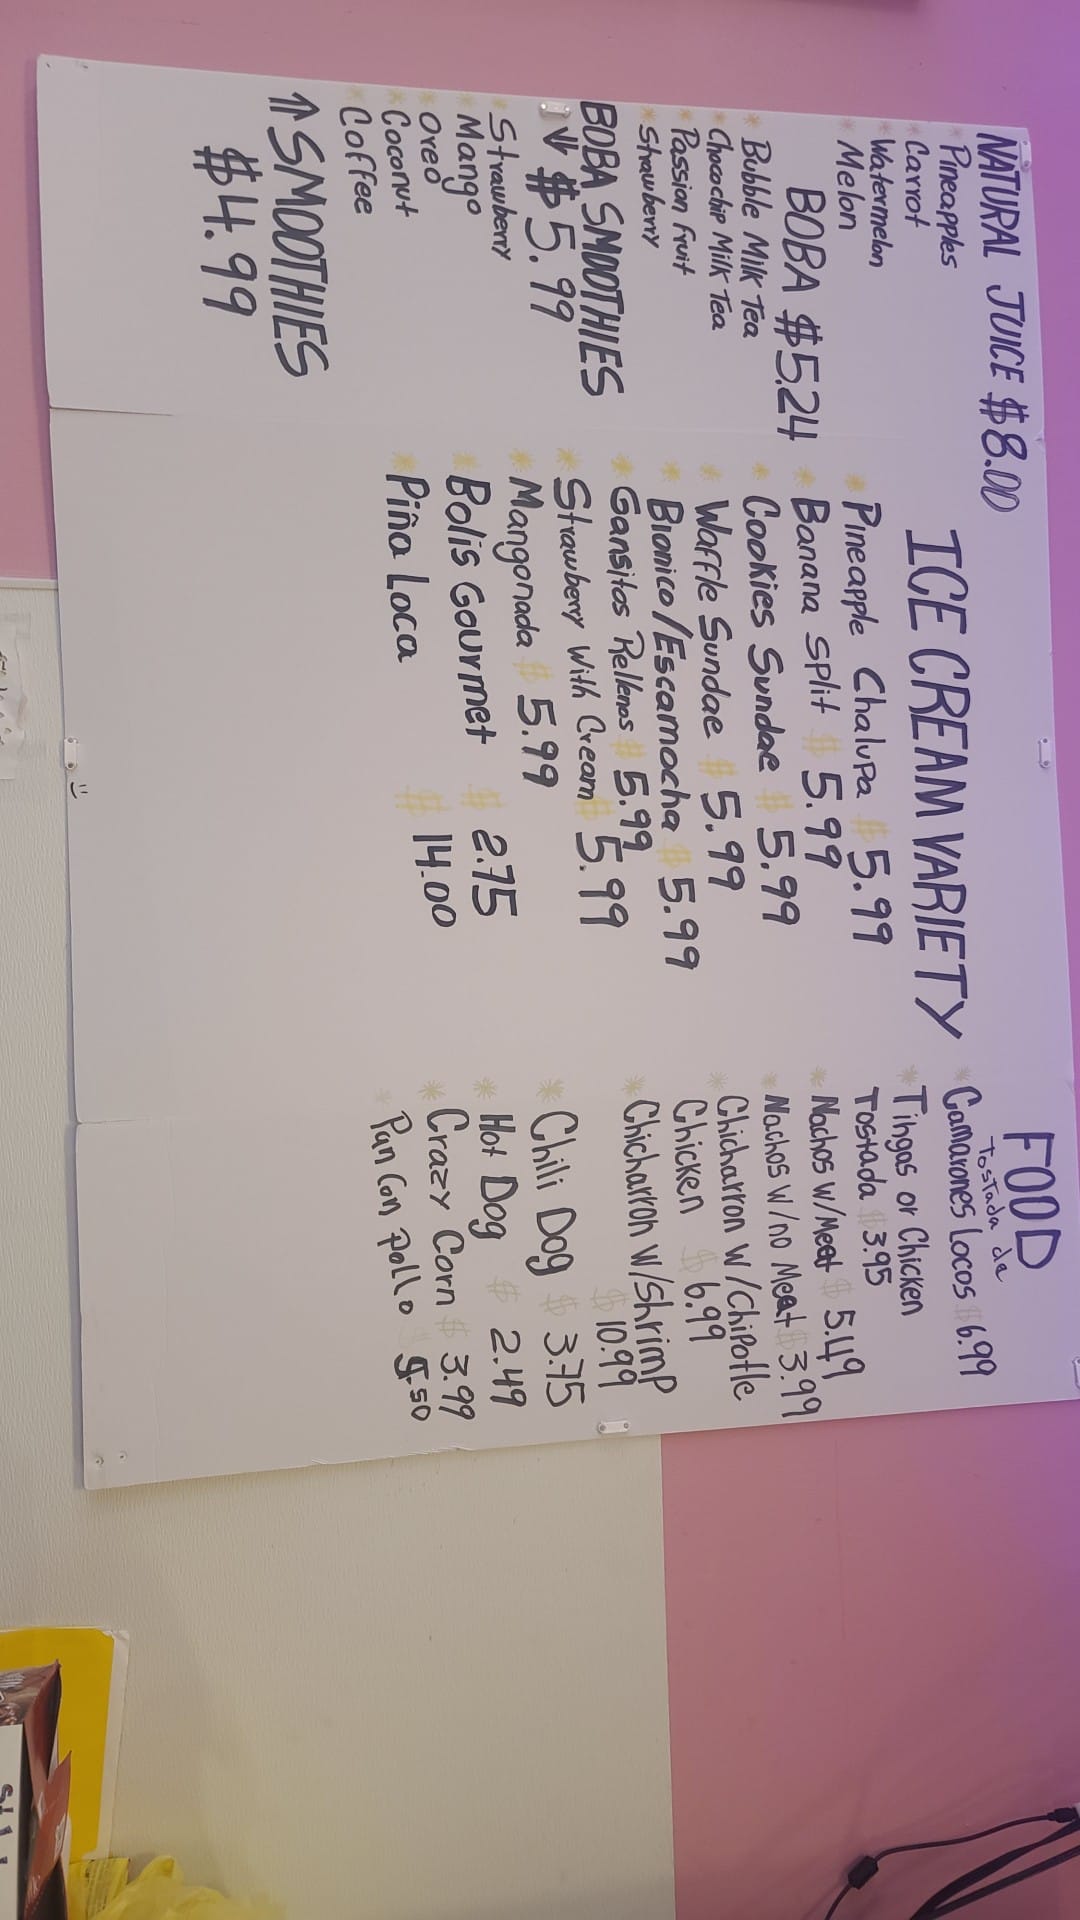 NATURAL JUICE $8.00
* Pineapples
* Carrot
* Watermelon
* Melon
BOBA $5.24
* Bubble Milk Tea
* Chocochip Milk Tea
* Passion Fruit
* Strawberry
BOBA SMOOTHIES
↓ $5.99
* Strawberry
* Mango
* Oreo
* Coconut
* Coffee
↑ SMOOTHIES
$4.99
ICE CREAM VARIETY
* Pineapple Chalupa $ 5.99
* Banana Split $ 5.99
* Cookies Sundae $ 5.99
* Waffle Sundae $ 5.99
* Bionico/Escamocha $ 5.99
* Gansitos Rellenos $ 5.99
* Strawberry With Cream $ 5.99
* Mangonada $ 5.99
* Bolis Gourmet $ 2.75
* Piña Loca $ 14.00
FOOD
Tostada de
* Camarones Locos $ 6.99
* Tingas or Chicken
Tostada $ 3.95
* Nachos w/Meat $ 5.49
* Nachos w/no Meat $ 3.99
* Chicharron w/Chipotle
Chicken $ 6.99
* Chicharron w/Shrimp
$ 10.99
* Chili Dog $ 3.75
* Hot Dog $ 2.49
* Crazy Corn $ 3.99
* Pan Con Pollo $ 5.50